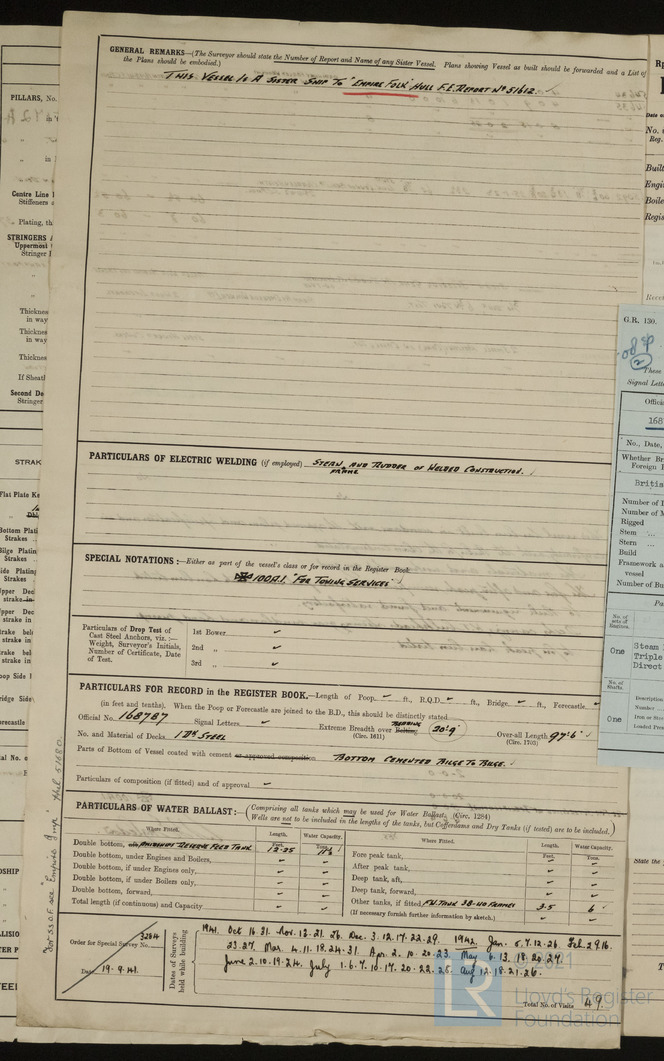 GENERAL REMARKS—(The Surveyor should state the Number of Report and Name of any Sister Vessel. Plans showing Vessel as built should be forwarded and a List of
the Plans should be embodied.)
THIS VESSEL IS A SISTER SHIP TO "EMPIRE FOLK" HULL F.E. REPORT Nº 51612.
PARTICULARS OF ELECTRIC WELDING (if employed) STERN AND RUDDER OF WELDED CONSTRUCTION.
FRAME
SPECIAL NOTATIONS:—Either as part of the vessel's class or for record in the Register Book
100A.1. "FOR TOWING SERVICES"
Particulars of Drop Test of
Cast Steel Anchors, viz.:—
Weight, Surveyor's Initials,
Number of Certificate, Date
of Test.
1st Bower
2nd "
3rd "
PARTICULARS FOR RECORD in the REGISTER BOOK.—Length of Poop ft., R.Q.D. ft., Bridge ft., Forecastle
(in feet and tenths). When the Poop or Forecastle are joined to the B.D., this should be distinctly stated
Official No. 168787 Signal Letters Extreme Breadth over Belting 20'9" Over-all Length 97'6"
(Circ. 1611) (Circ. 1703)
No. and Material of Decks 1 DK STEEL
Parts of Bottom of Vessel coated with cement or approved composition BOTTOM CEMENTED BILGE TO BILGE.
Particulars of composition (if fitted) and of approval
PARTICULARS OF WATER BALLAST:—(Comprising all tanks which may be used for Water Ballast. (Circ. 1284)
Wells are not to be included in the lengths of the tanks, but Cofferdams and Dry Tanks (if tested) are to be included.)
Where Fitted. Length. Water Capacity. Where Fitted. Length. Water Capacity.
Feet. Tons. Feet. Tons.
Double bottom, AMIDSHIPS RESERVE FEED TANK 12.25 11½
Double bottom, under Engines and Boilers,
Double bottom, if under Engines only,
Double bottom, if under Boilers only,
Double bottom, forward,
Total length (if continuous) and Capacity
Fore peak tank,
After peak tank,
Deep tank, aft,
Deep tank, forward,
Other tanks, if fitted F.W. TANK 38-40 FRAMES 3.5 6
(If necessary furnish further information by sketch.)
Order for Special Survey No. 3264
Date 19.9.41.
Dates of Surveys
held while building
1941. Oct 16.31. Nov. 12.21.26. Dec. 3.12.17.22.29. 1942. Jan. 5.7.12.26. Feb. 2.9.16.
23.27. Mar. 4.11.18.24.31. Apr. 2.10.20.23. May 6.13.18.20.27.
June 2.10.19.24. July 1.6.7.10.17.20.22.28. Aug 12.18.21.26.
Total No. of Visits 49.
© 2021
LR
Lloyd's Register
Foundation
PILLARS, No.
Centre Line
Stiffeners
Plating, th
STRINGERS
Uppermost
Stringer
Thickness
in way
Thickness
in way
Thickness
If Sheath
Second De
Stringer
STRAK
Flat Plate Ke
Bottom Plati
Strakes
Bilge Platin
Strakes
G.R. 130.
These
Signal Lette
Officia
168
No., Date,
Whether Br
Foreign
Britis
Number of
Number of
Rigged
Stem
Stern
Build
Framework a
vessel
Number of Bu
One
Steam
Triple
Direct
One
Built
Engin
Boile
Regis